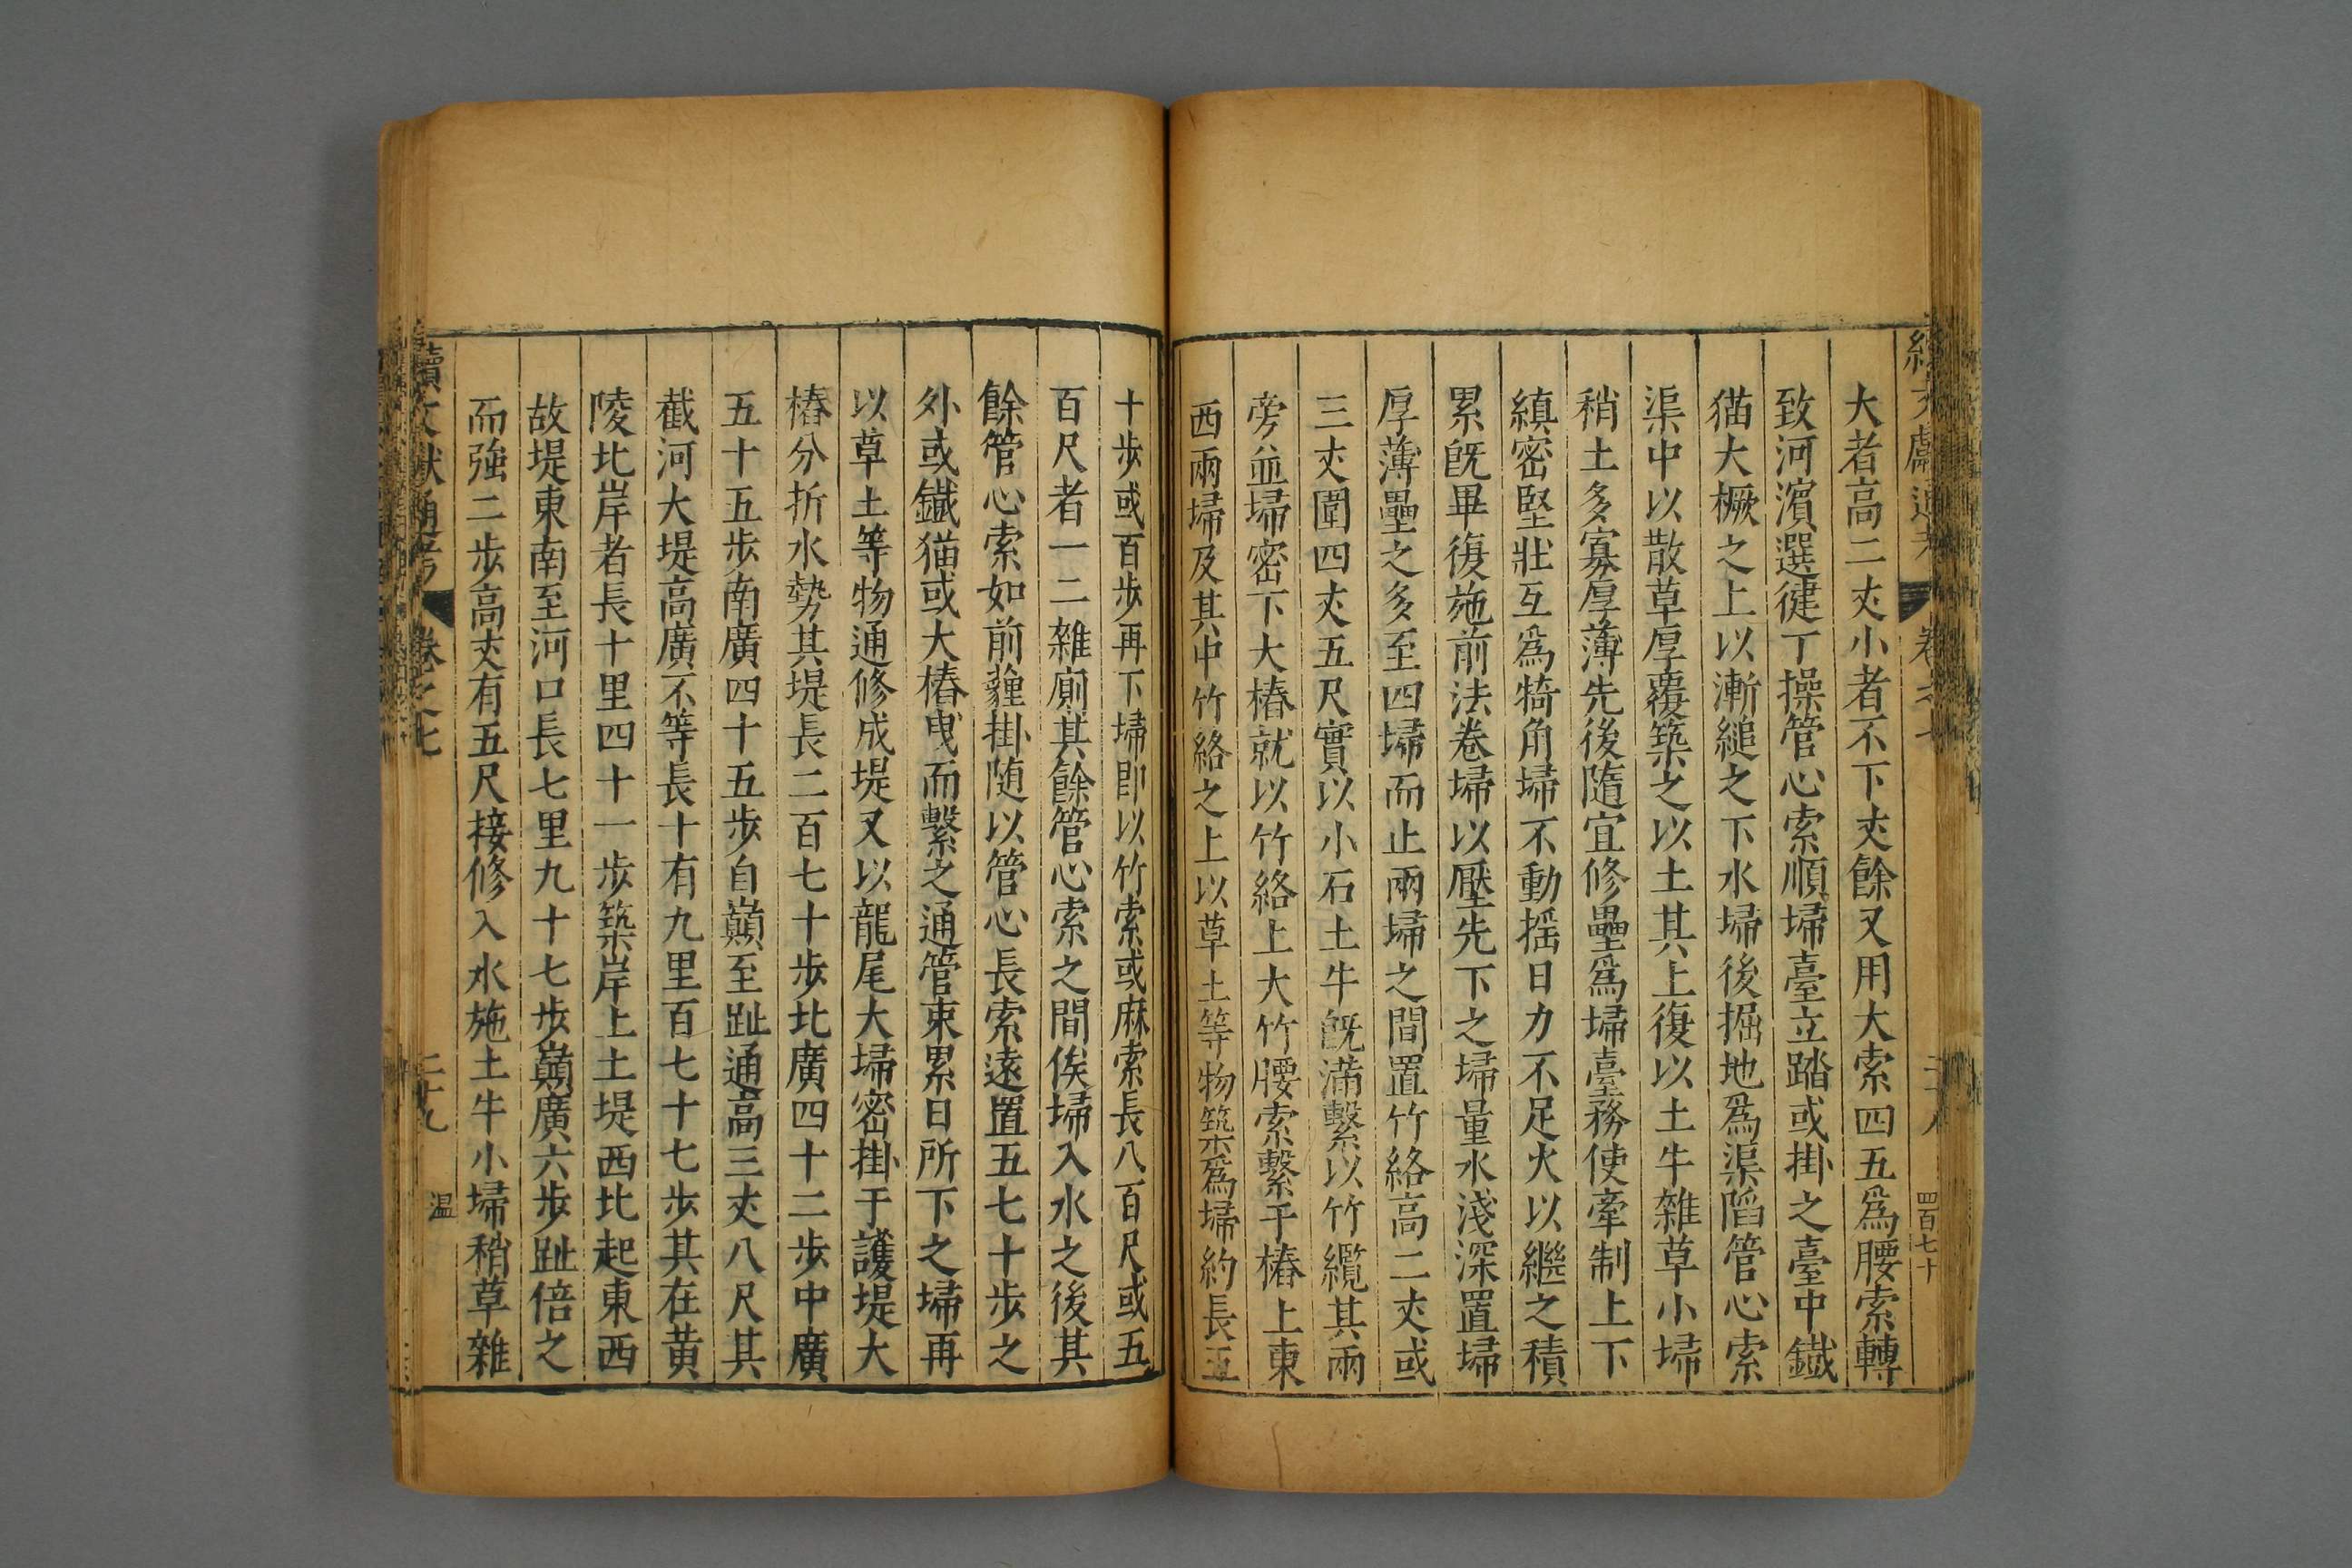 續文獻通考 卷之七 二十八 四百七十
大者高二丈小者不下丈餘又用大索四五爲腰索轉
致河濱選健丁操管心索順埽臺立踏或掛之臺中鐵
猫大橛之上以漸縋之下水埽後掘地爲渠陷管心索
渠中以散草厚覆築之以土其上復以土牛雜草小埽
稍土多寡厚薄先後隨宜修壘爲埽臺務使牽制上下
縝密堅壯互爲犄角埽不動揺日力不足火以繼之積
累旣畢復施前法卷埽以壓先下之埽量水淺深置埽
厚薄壘之多至四埽而止兩埽之間置竹絡高二丈或
三丈圍四丈五尺實以小石土牛旣滿繫以竹纜其兩
旁並埽密下大樁就以竹絡上大竹腰索繫于樁上東
西兩埽及其中竹絡之上以草土等物築爲埽約長五
十步或百步再下埽卽以竹索或麻索長八百尺或五
百尺者一二雜廁其餘管心索之間俟埽入水之後其
餘管心索如前薶掛随以管心長索遠置五七十步之
外或鐵猫或大樁曳而繫之通管束累日所下之埽再
以草土等物通修成堤又以龍尾大埽密掛于護堤大
樁分折水勢其堤長二百七十步北廣四十二步中廣
五十五步南廣四十五步自巔至趾通高三丈八尺其
截河大堤高廣不等長十有九里百七十七步其在黄
陵北岸者長十里四十一步築岸上土堤西北起東西
故堤東南至河口長七里九十七步巔廣六步趾倍之
而強二步高丈有五尺接修入水施土牛小埽稍草雜
續文獻通考 卷之七 二十九 溫